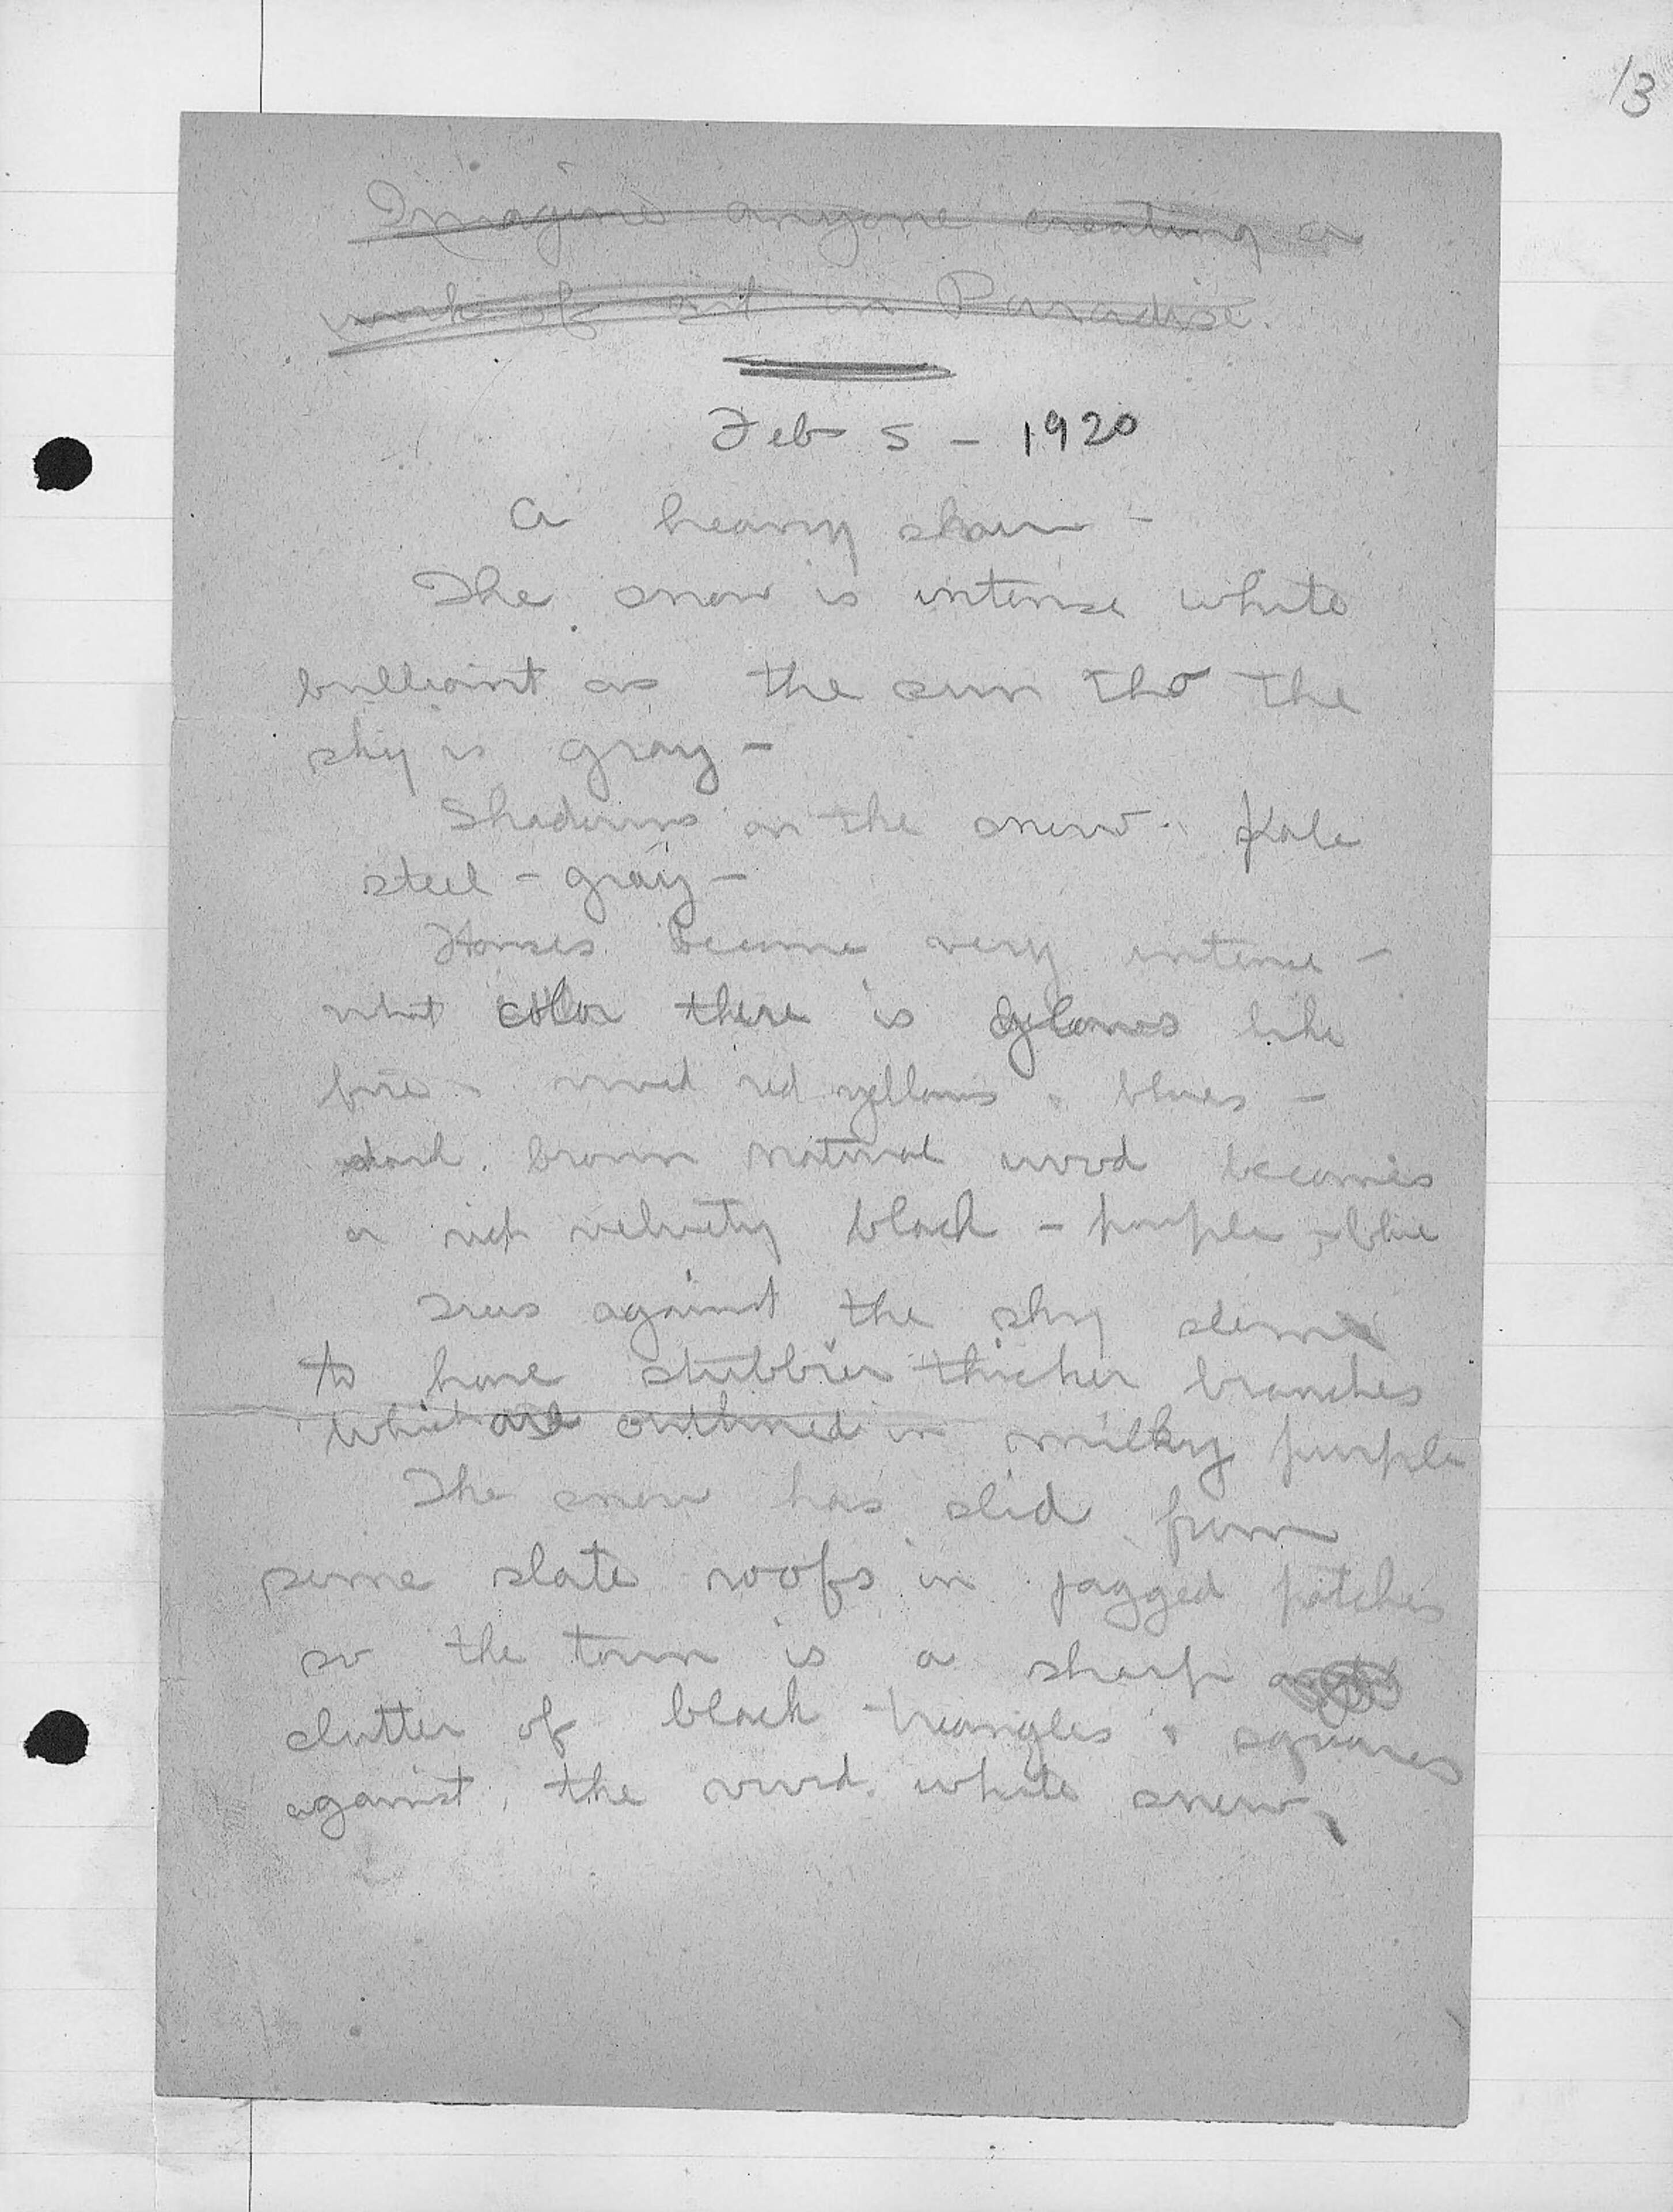 13
Imagine anyone creating a
work of art in Paradise.
Feb 5 - 1920
A heavy snow -
The snow is intense white
brilliant as the sun tho the
sky is gray -
Shadows on the snow pale
steel - gray -
Houses become very intense -
what color there is glows like
fire - vivid red yellows + blues -
dark brown natural wood becomes
a rich velvety black - purple + blue
Trees against the sky seem
to have stubbier thicker branches
which are outlined in milky purple
The snow has slid from
some slate roofs in jagged patches
so the town is a sharp
clutter of black triangles + squares
against the vivid white snow